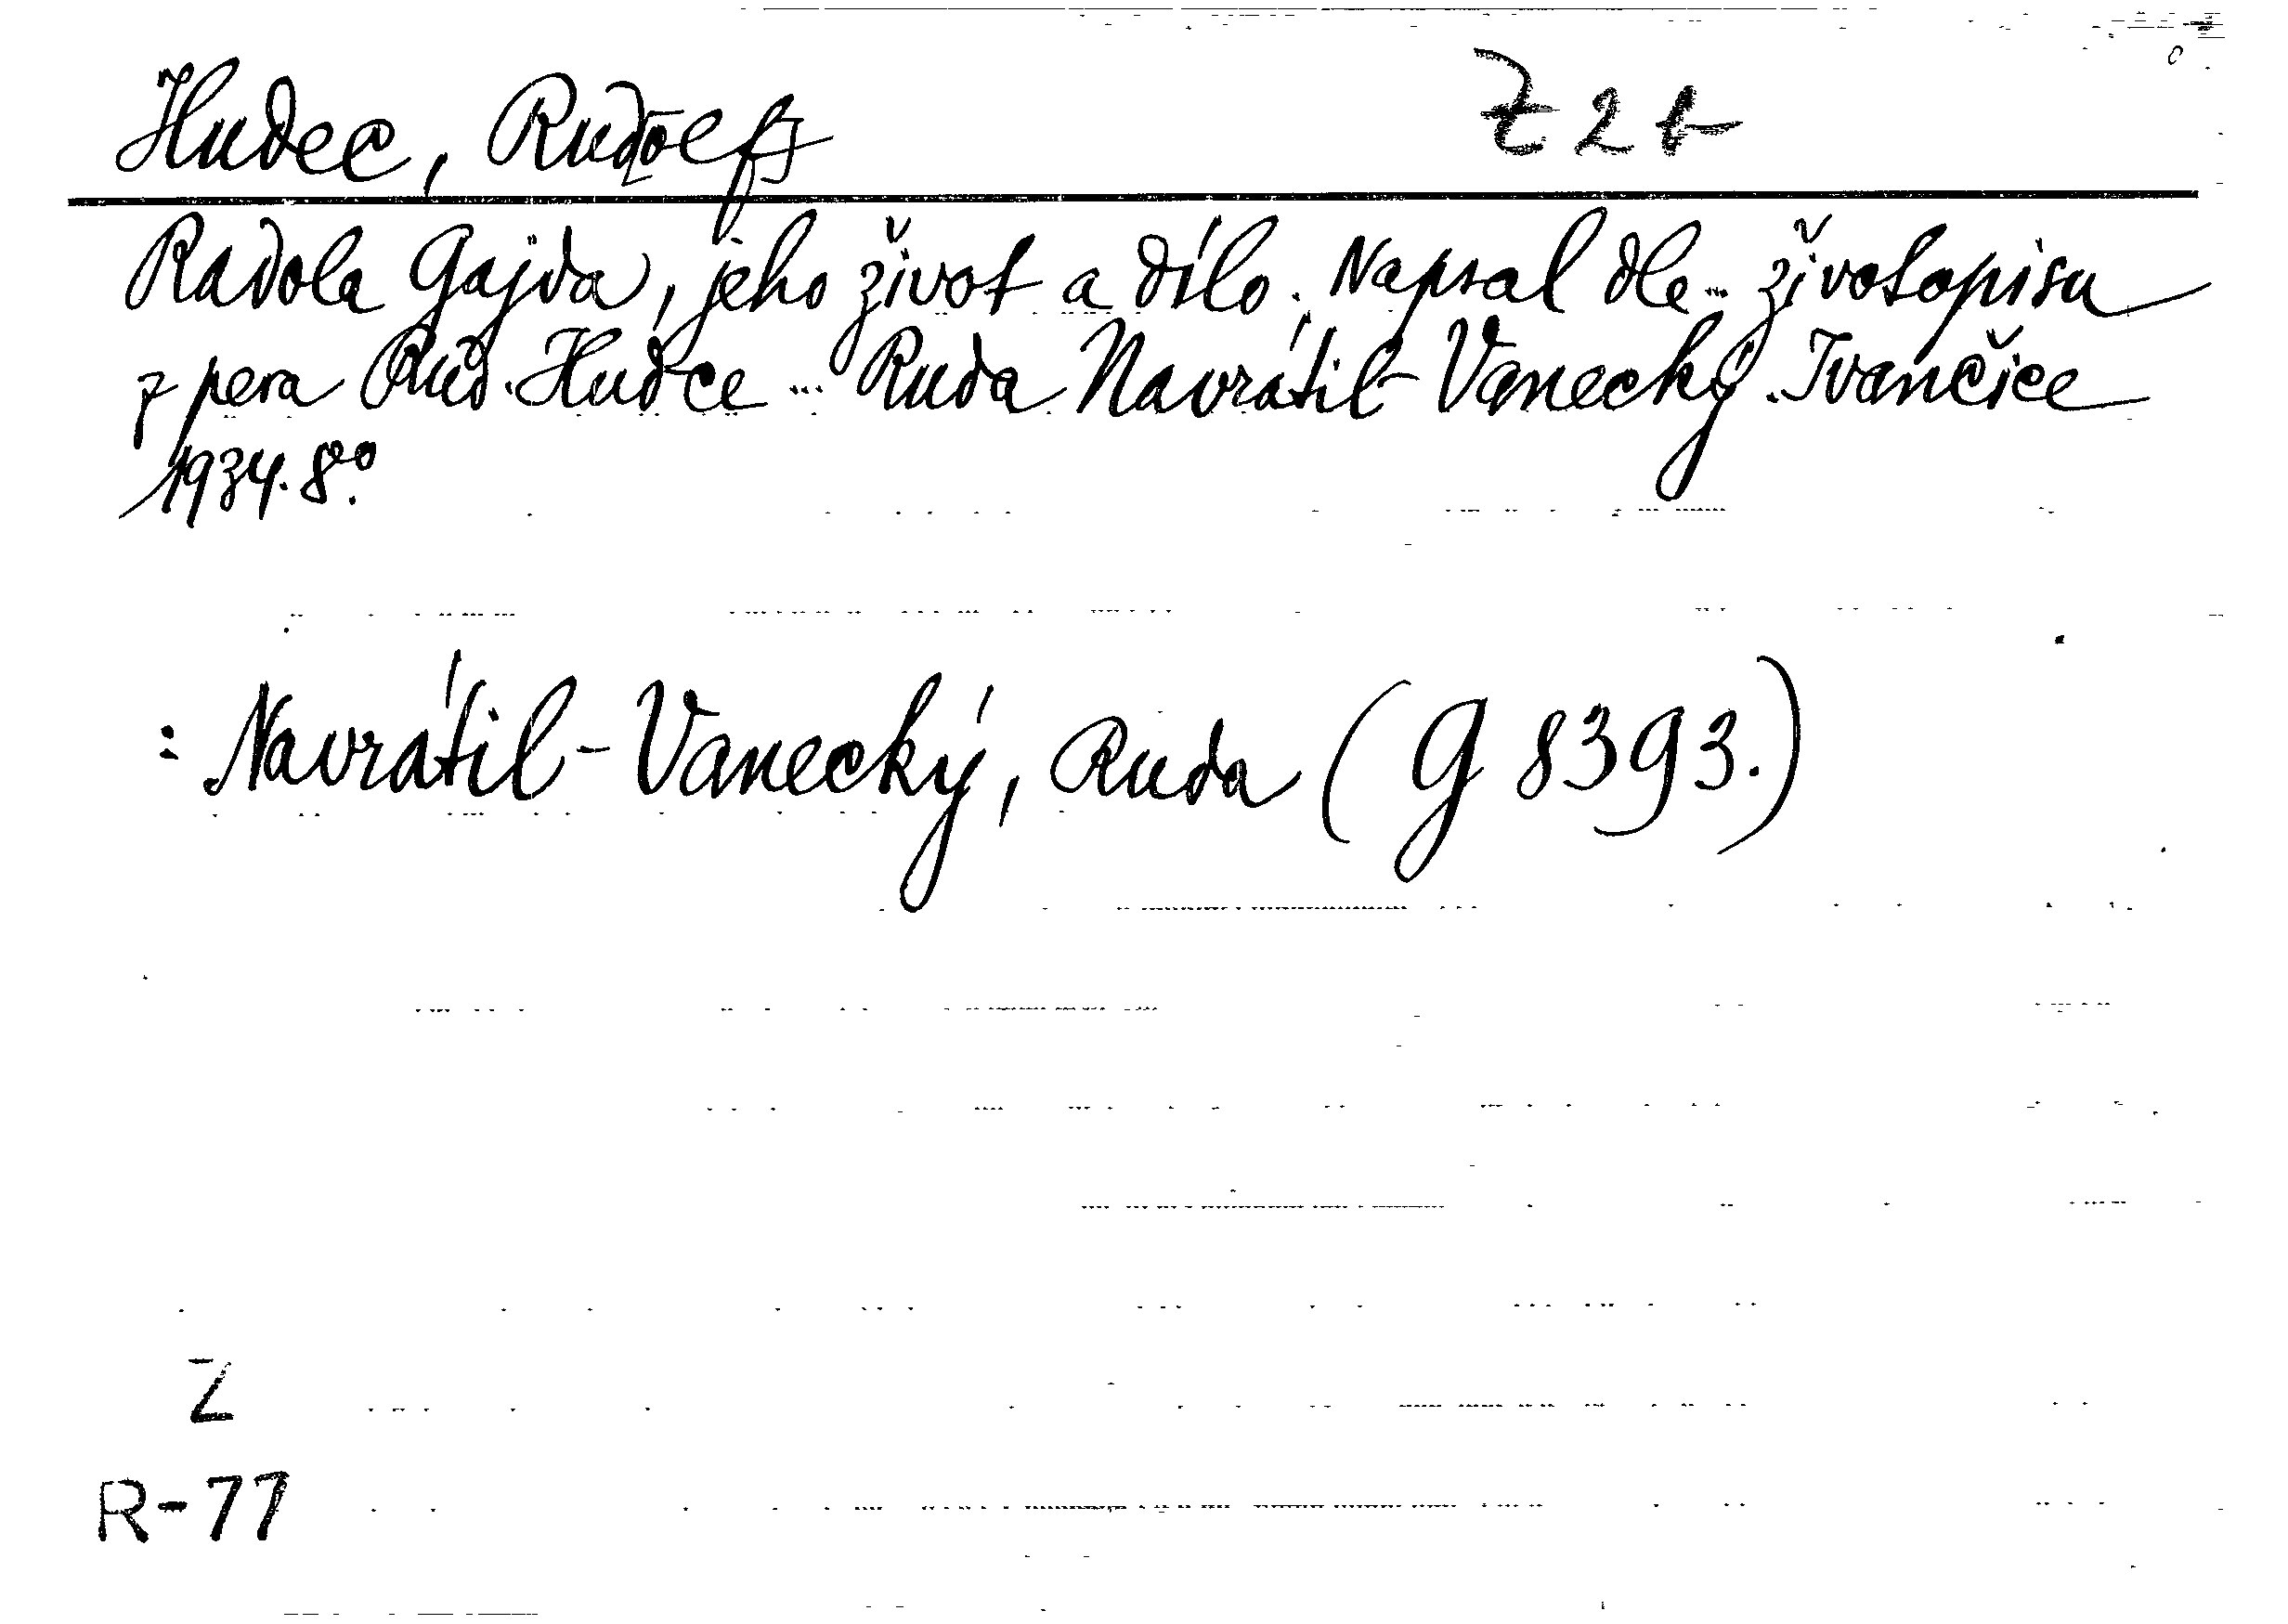 Hudec, Rudolf
Radola Gajda, jeho život a dílo. Napsal dle... životopisu
z pera Rud. Hudce... Ruda Navrátil-Vanecký. Ivančice
1934. 8°.
: Navrátil-Vanecký, Ruda (G 8393.)
Z
R-77